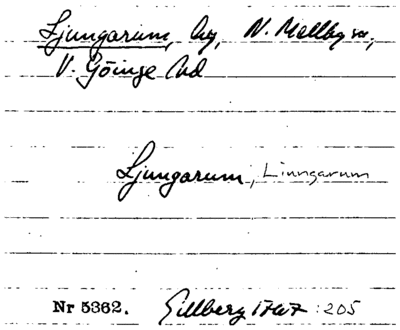 Ljungarum, by, N. Mellby sn,
V. Göinge hd
Ljungarum, Linngarum
Nr 5362. Gillberg 1767 :205